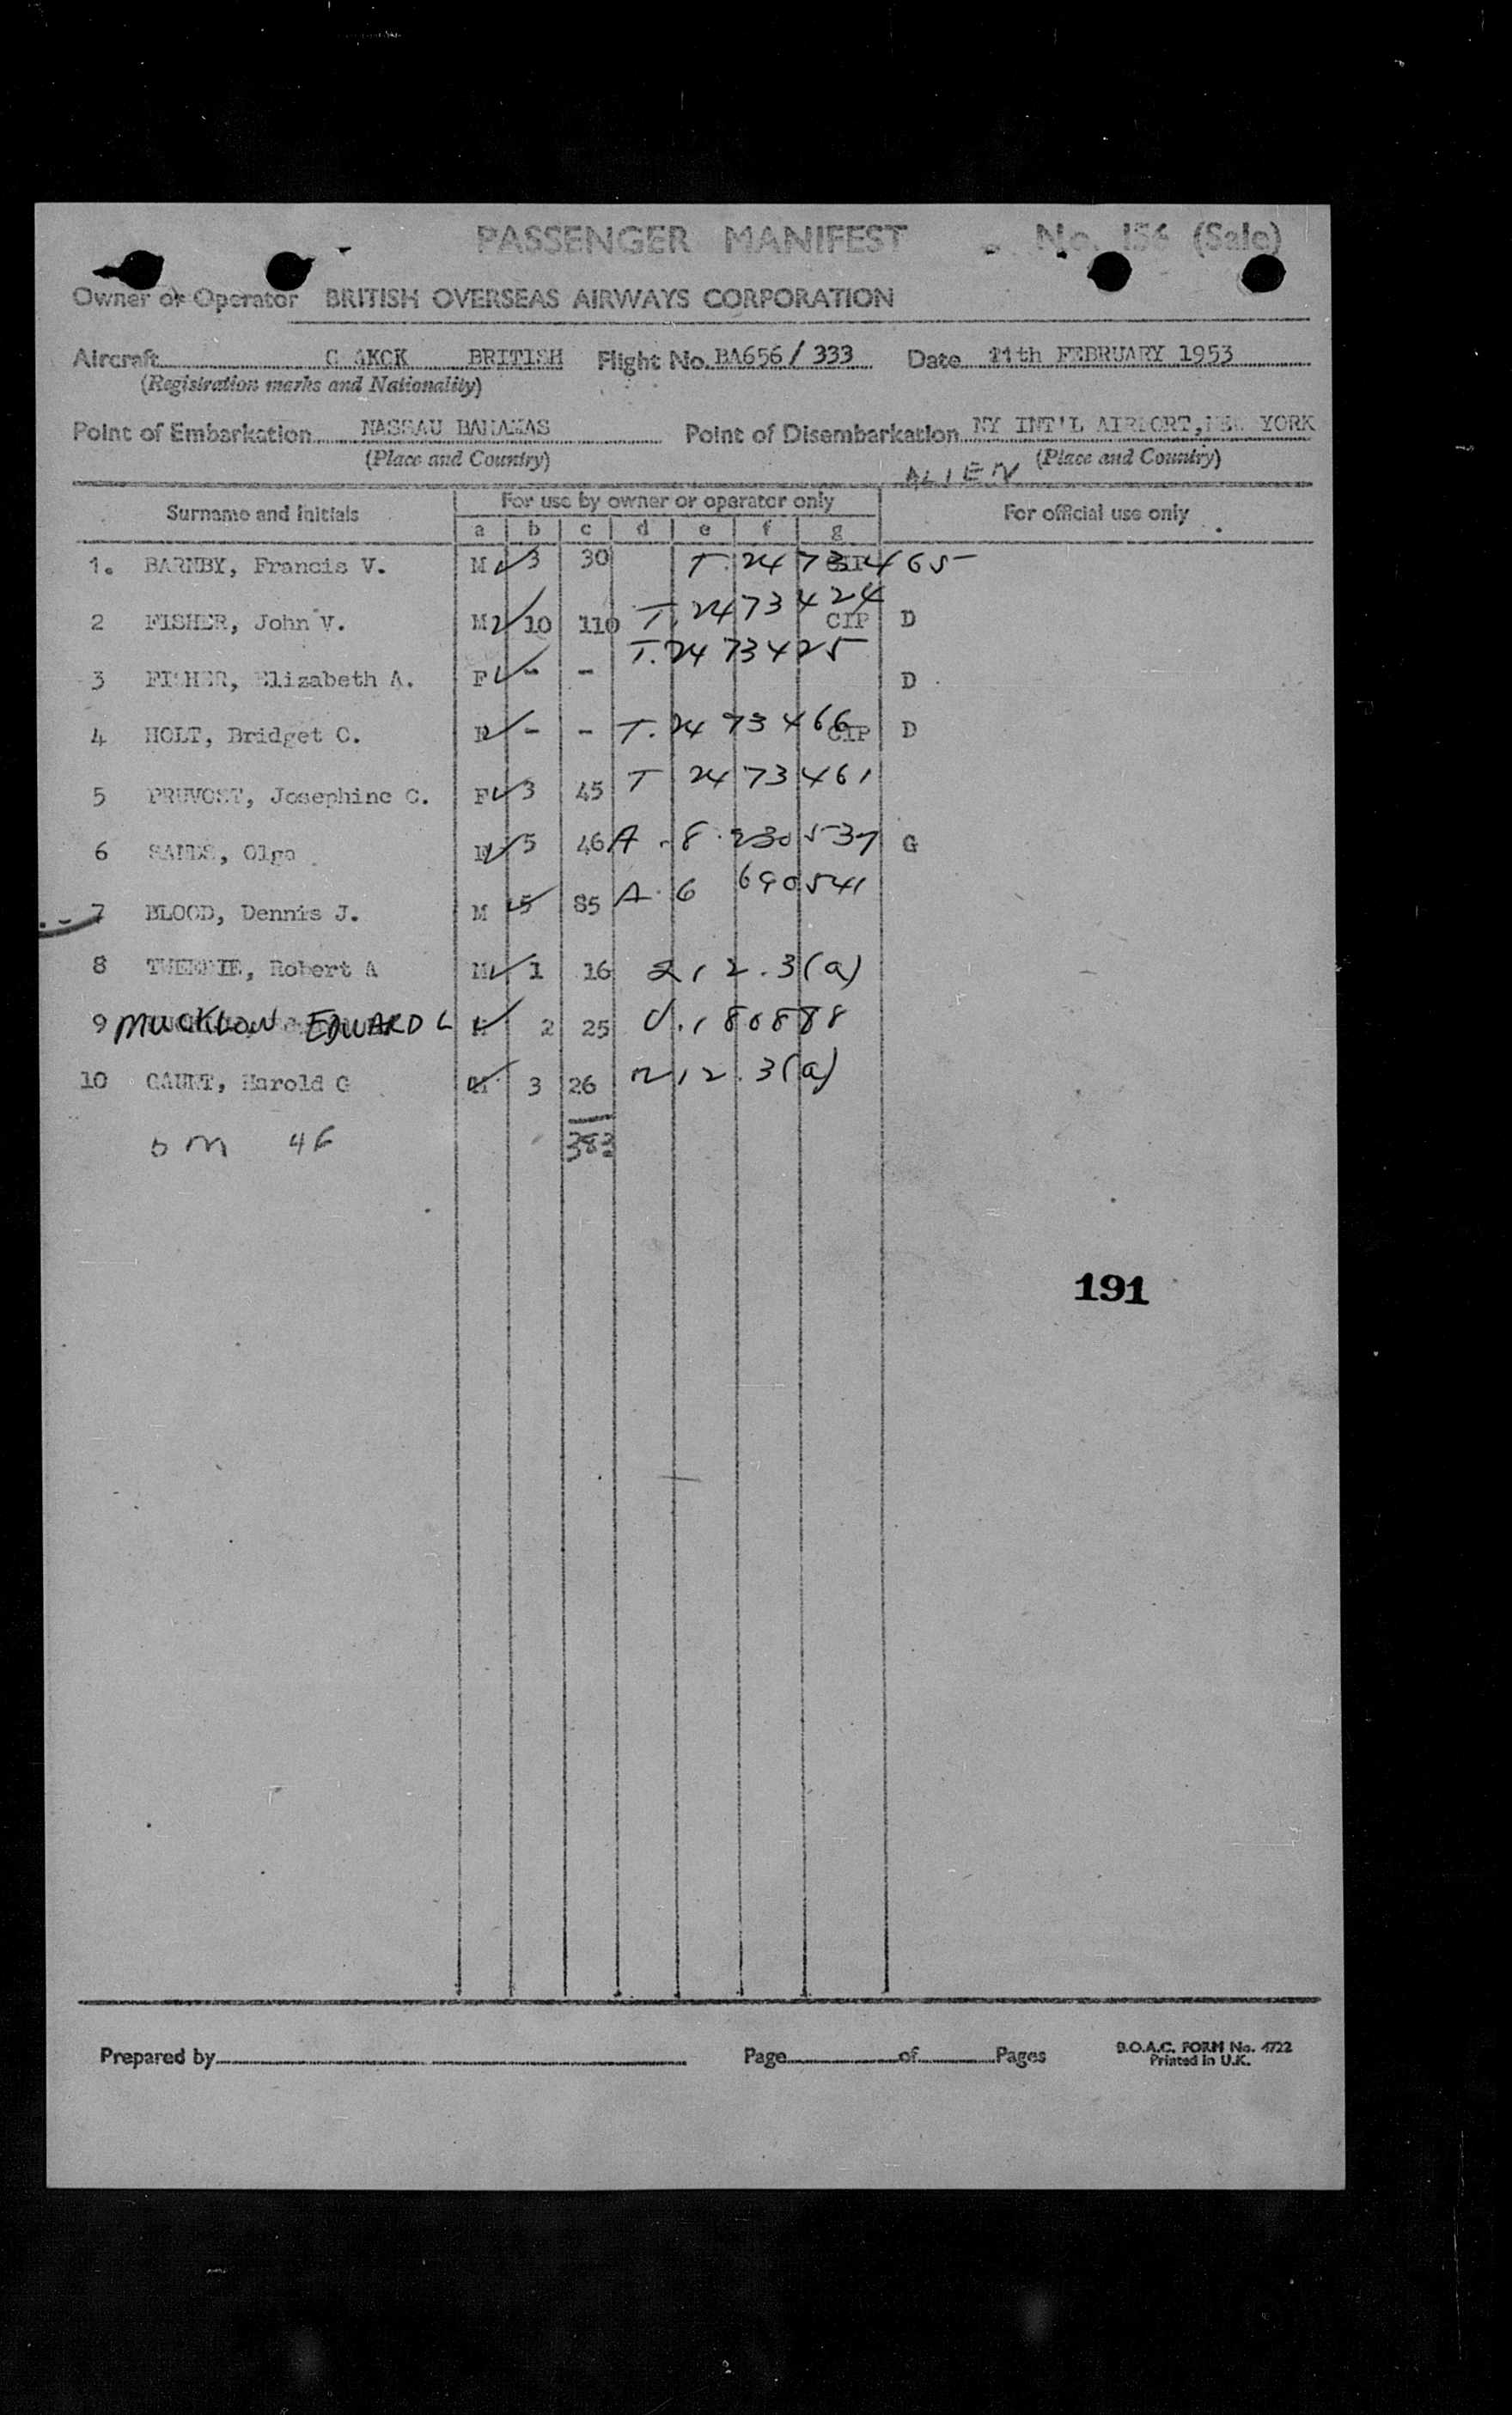 PASSENGER MANIFEST - No. 154 (Sale)
Owner or Operator BRITISH OVERSEAS AIRWAYS CORPORATION
Aircraft G AKCK BRITISH Flight No. BA656/333 Date 11th FEBRUARY 1953
(Registration marks and Nationality)
Point of Embarkation NASSAU BAHAMAS Point of Disembarkation NY INT'L AIRPORT, NEW YORK
(Place and Country) (Place and Country)
ALIEN
Surname and initials For use by owner or operator only For official use only
a b c d e f g
1. BARNBY, Francis V. M 3 30 T. 2473465
2 FISHER, John V. M 10 110 T. 2473424 CIP D
3 FISHER, Elizabeth A. F - - T. 2473425 D
4 HOLT, Bridget C. F - - T. 2473466 CIP D
5 PRUVOST, Josephine C. F 3 45 T 2473461
6 SANDS, Olga F 5 46 A. 8.230537 G
7 BLOOD, Dennis J. M 5 85 A. 6 690541
8 Robert A M 1 16 212.3(a)
9 MUCKLOW EDWARD L M 2 25 V.180888
10 GAUNT, Harold G M 3 26 212.3(a)
6 M 4 F 383
191
Prepared by Page of Pages B.O.A.C. FORM No. 4722
Printed in U.K.